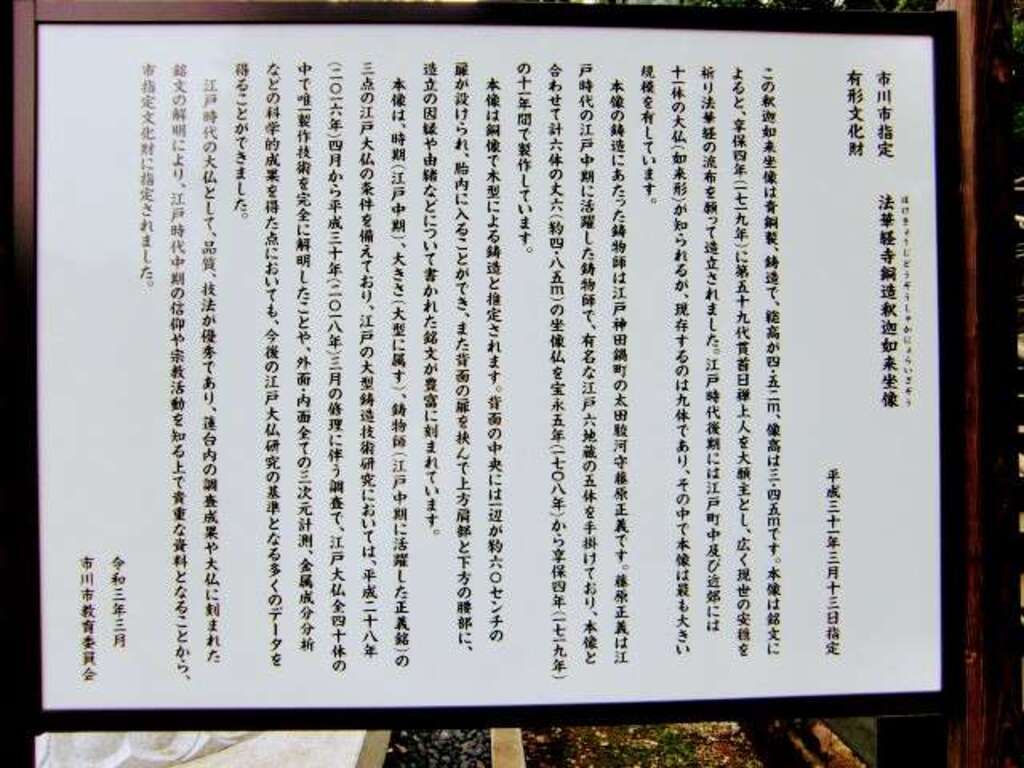 市川市指定
有形文化財
ほけきょうじどうぞうしゃかにょらいざぞう
法華経寺銅造釈迦如来坐像
平成三十一年三月十三日指定
この釈迦如来坐像は青銅製、鋳造で、総高が四・五二m、像高は三・四五mです。本像は銘文に
よると、享保四年(一七一九年)に第五十九代貫首日禅上人を大願主とし、広く現世の安穏を
祈り法華経の流布を願って造立されました。江戸時代後期には江戸町中及び近郊には
十一体の大仏(如来形)が知られるが、現存するのは九体であり、その中で本像は最も大きい
規模を有しています。
本像の鋳造にあたった鋳物師は江戸神田鍋町の太田駿河守藤原正義です。藤原正義は江
戸時代の江戸中期に活躍した鋳物師で、有名な江戸六地蔵の五体を手掛けており、本像と
合わせて計六体の丈六(約四・八五m)の坐像仏を宝永五年(一七〇八年)から享保四年(一七一九年)
の十一年間で製作しています。
本像は銅像で木型による鋳造と推定されます。背面の中央には一辺が約六〇センチの
扉が設けられ、胎内に入ることができ、また背面の扉を挟んで上方肩部と下方の腰部に、
造立の因縁や由緒などについて書かれた銘文が豊富に刻まれています。
本像は、時期(江戸中期)、大きさ(大型に属す)、鋳物師(江戸中期に活躍した正義銘)の
三点の江戸大仏の条件を備えており、江戸の大型鋳造技術研究においては、平成二十八年
(二〇一六年)四月から平成三十年(二〇一八年)三月の修理に伴う調査で、江戸大仏全四十体の
中で唯一製作技術を完全に解明したことや、外面・内面全ての三次元計測、金属成分分析
などの科学的成果を得た点においても、今後の江戸大仏研究の基準となる多くのデータを
得ることができました。
江戸時代の大仏として、品質、技法が優秀であり、蓮台内の調査成果や大仏に刻まれた
銘文の解明により、江戸時代中期の信仰や宗教活動を知る上で貴重な資料となることから、
市指定文化財に指定されました。
令和三年三月
市川市教育委員会